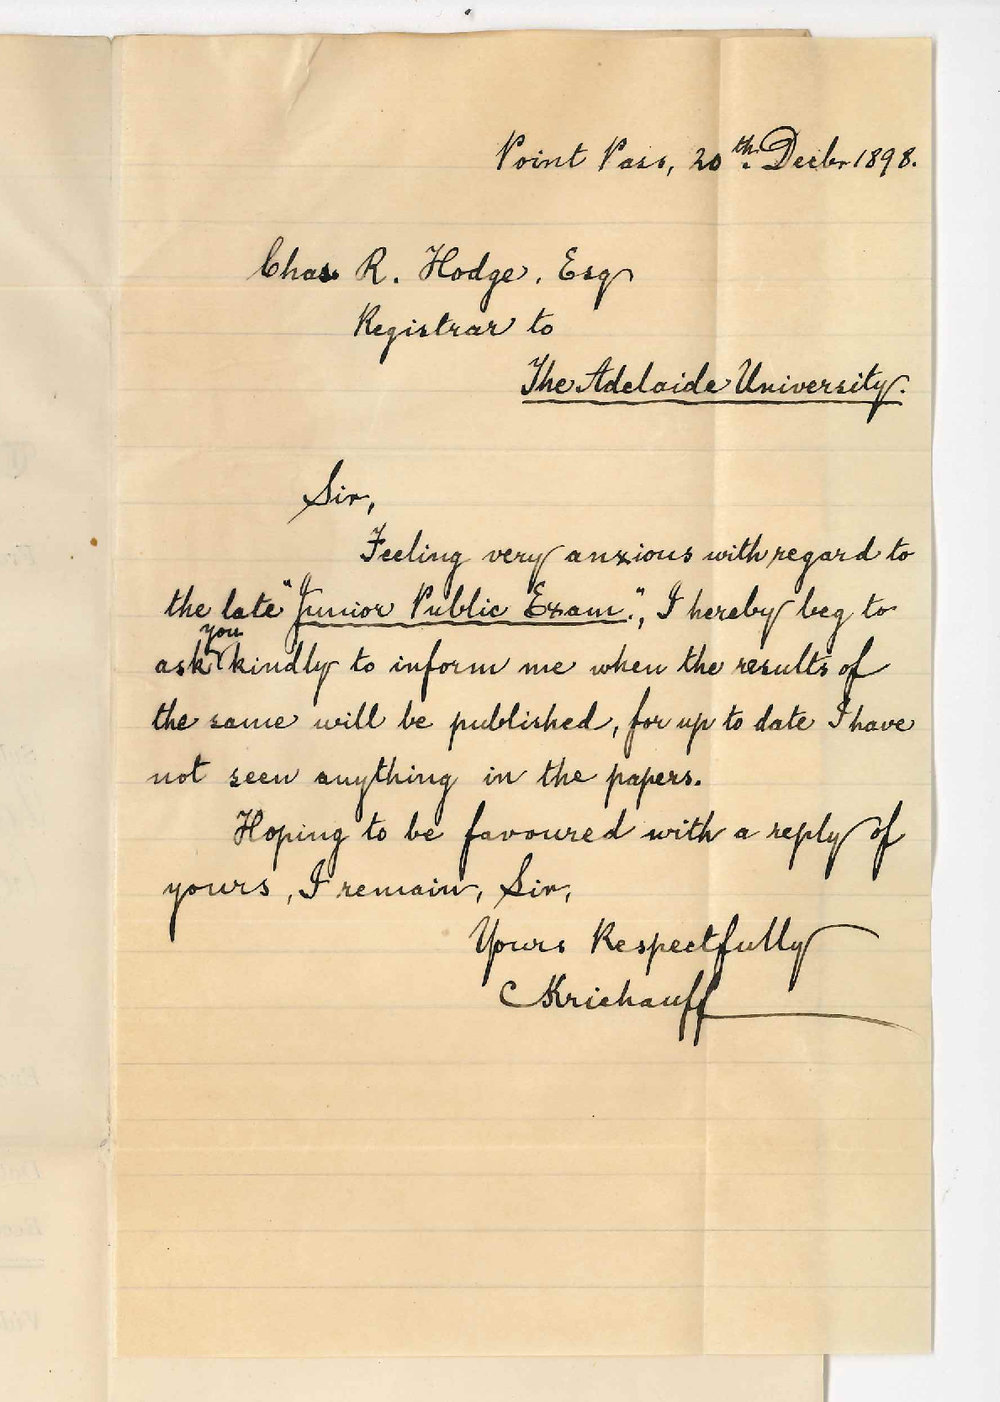 Point Pass, 20th. Decbr 1898.
Chas. R. Hodge, Esq
Registrar to
The Adelaide University.
Sir,
Feeling very anxious with regard to
the late "Junior Public Exam.", I hereby beg to
you
ask kindly to inform me when the results of
the same will be published, for up to date I have
not seen anything in the papers.
Hoping to be favoured with a reply of
yours, I remain, Sir,
Yours Respectfully
C Krichauff